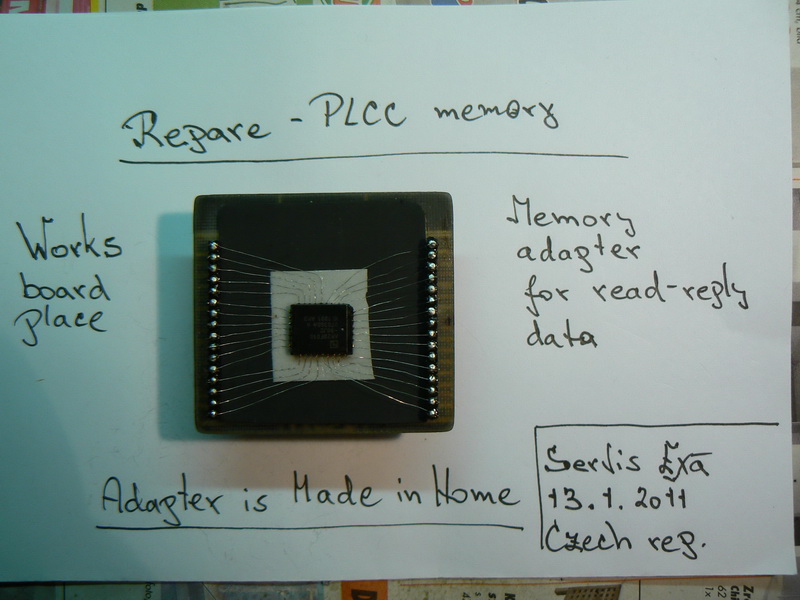 Repare - PLCC memory
Works
board
place
Memory
adapter
for read-reply
data
Adapter is Made in Home
Servis Exa
13.1.2011
Czech rep.